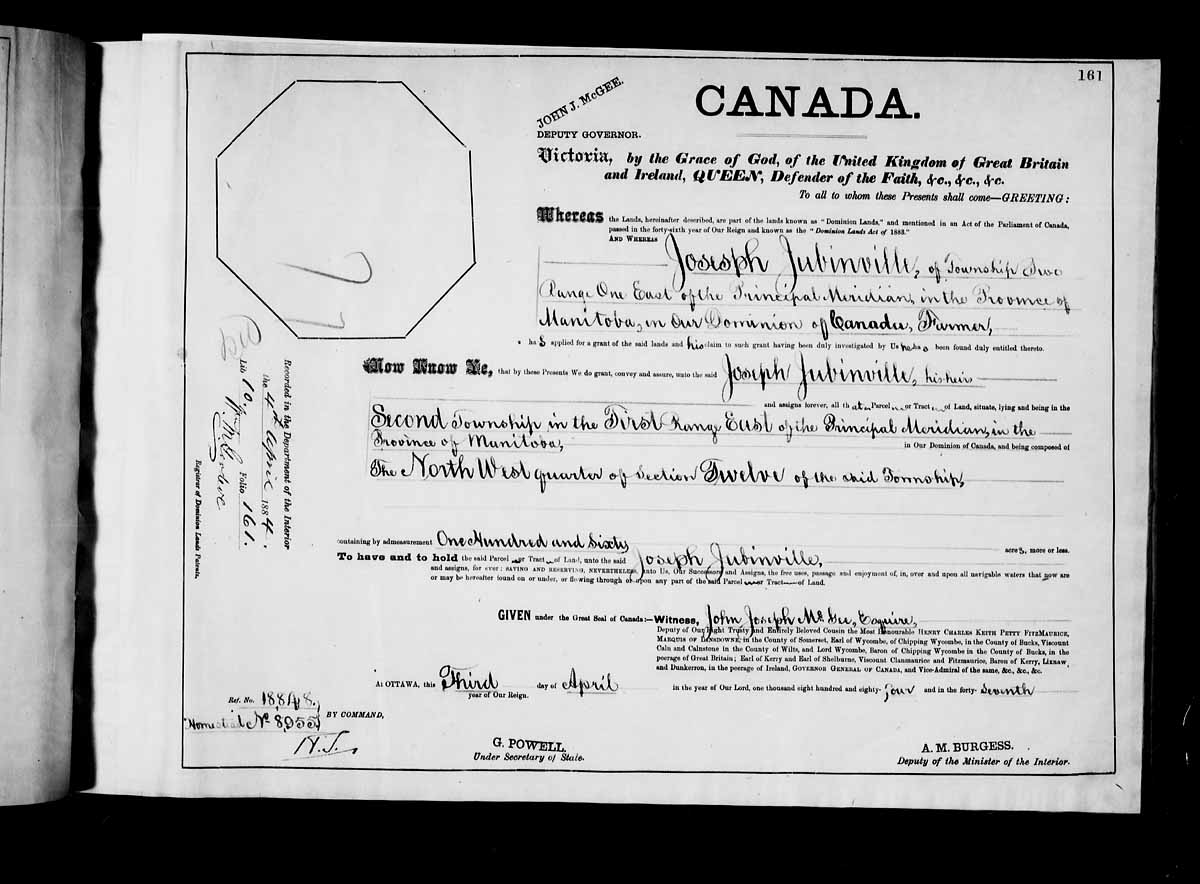 161
JOHN J. McGEE.
DEPUTY GOVERNOR.
CANADA.
Victoria, by the Grace of God, of the United Kingdom of Great Britain
and Ireland, QUEEN, Defender of the Faith, &c., &c., &c.
To all to whom these Presents shall come—GREETING:
Whereas the Lands, hereinafter described, are part of the lands known as "Dominion Lands," and mentioned in an Act of the Parliament of Canada,
passed in the forty-sixth year of Our Reign and known as the "Dominion Lands Act of 1883."
AND WHEREAS
Joseph Jubinville, of Township Two
Range One East of the Principal Meridian, in the Province of
Manitoba, in Our Dominion of Canada, Farmer,
has applied for a grant of the said lands and his claim to such grant having been duly investigated by Us he has been found duly entitled thereto.
Now Know Ye, that by these Presents We do grant, convey and assure, unto the said Joseph Jubinville, his heirs
and assigns forever, all that Parcel or Tract of Land, situate, lying and being in the
Second Township in the First Range East of the Principal Meridian, in the
Province of Manitoba, in Our Dominion of Canada, and being composed of
The North West quarter of Section Twelve of the said Township,
containing by admeasurement One Hundred and Sixty acres, more or less.
To have and to hold the said Parcel or Tract of Land, unto the said Joseph Jubinville,
and assigns, for ever: SAVING AND RESERVING, NEVERTHELESS, unto Us, Our Successors and Assigns, the free uses, passage and enjoyment of, in, over and upon all navigable waters that now are
or may be hereafter found on or under, or flowing through or upon any part of the said Parcel or Tract of Land.
GIVEN under the Great Seal of Canada:—Witness, John Joseph McGee, Esquire,
Deputy of Our Right Trusty and Entirely Beloved Cousin the Most Honourable HENRY CHARLES KEITH PETTY FITZMAURICE,
MARQUIS OF LANSDOWNE, in the County of Somerset, Earl of Wycombe, of Chipping Wycombe, in the County of Bucks, Viscount
Caln and Calnstone in the County of Wilts, and Lord Wycombe, Baron of Chipping Wycombe in the County of Bucks, in the
peerage of Great Britain; Earl of Kerry and Earl of Shelburne, Viscount Clanmaurice and Fitzmaurice, Baron of Kerry, Lixnaw,
and Dunkerron, in the peerage of Ireland, GOVERNOR GENERAL OF CANADA, and Vice-Admiral of the same, &c., &c., &c.
At OTTAWA, this Third day of April in the year of Our Lord, one thousand eight hundred and eighty-four and in the forty-seventh
year of Our Reign.
Ref. No. 18848.
Homestead No 8955
BY COMMAND,
G. POWELL,
Under Secretary of State.
A. M. BURGESS.
Deputy of the Minister of the Interior.
Recorded in the Department of the Interior
the 4th April 1884.
Lib 10. Folio 161.
Registrar of Dominion Lands Patents.